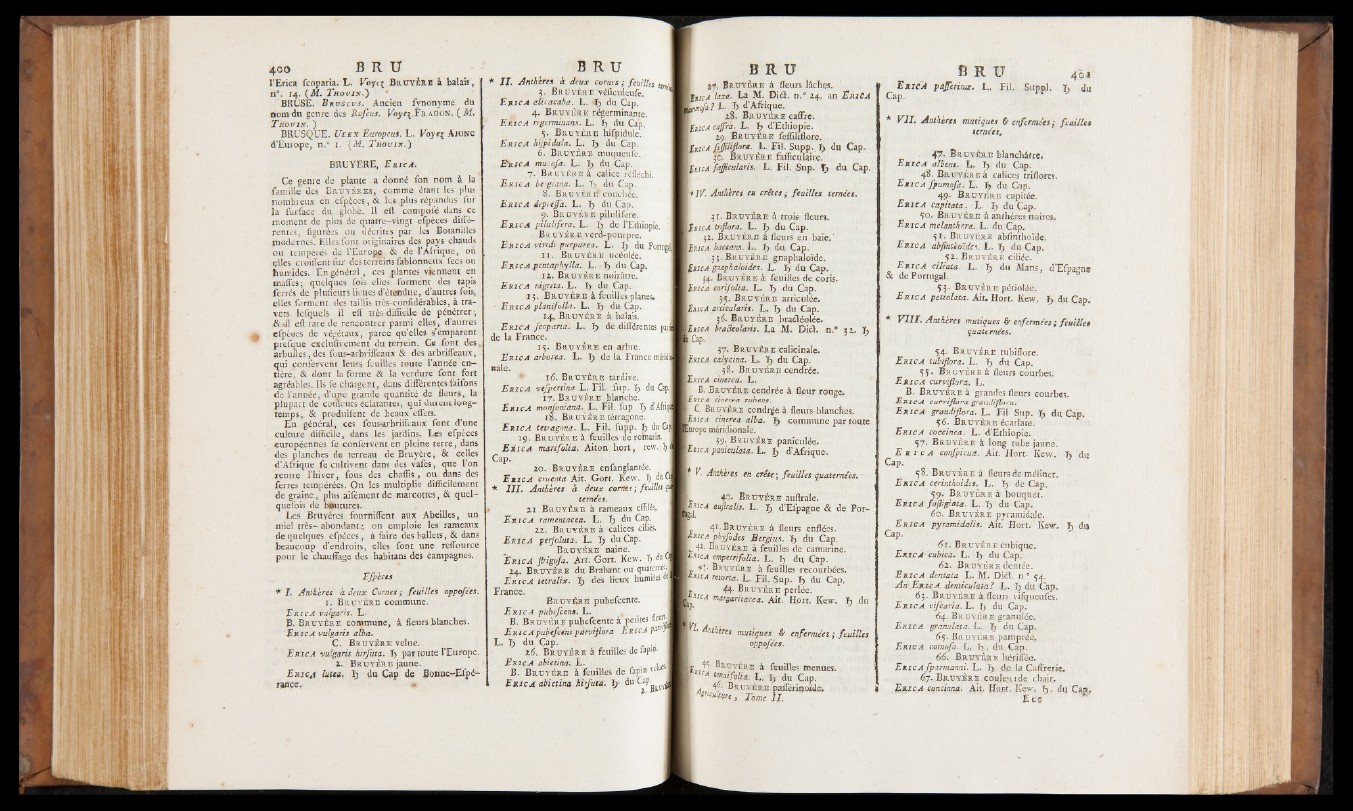 400 BRU
l'Erica ſcoparia. L. Voyez BRUYÈRE à balais,
n°. 14. (M. THOUIN.)
BRUSE. BRUSCUS. Ancien ſynonyme du
nom du genre des Ruſcus. Voyez FRAGON. (M.
THOUIN.)
BRUSQUE. ULEX Europeus. L. Voyez AJONC
d'Europe, n.° 1. (M. THOUIN.)
BRUYERE, ERICA.
Ce genre de plante a donné ſon nom à la
famille des BRUYÈRES, comme étant les plus
nombreux en eſpèces, & les plus répandus ſur
la ſurface du globe. Il eſt compoſé dans ce
moment de plus de quatre-vingt eſpèces diffé-
rentes, figurées ou décrites par les Botaniſtes
modernes. Elles ſont originaires des pays chauds
ou tempérés de l'Europe & de l'Afrique, où
elles croiſſent ſur des terreins ſablonneux ſecs ou
humides. En général, ces plantes viennent en
maſſes; quelques fois elles forment des tapis
ſerrés de pluſieurs lieues d'étendue, d'autres fois,
elles forment des taillis très-conſidérables, à tra-
vers leſquels il eſt très-difficile de pénétrer;
& il eſt rare de rencontrer parmi elles, d'autres
eſpèces de végétaux, parce qu'elles s'emparent
preſque excluſivement du terrein. Ce ſont des
arbuſtes, des ſous-arbriſſeaux & des arbriſſeaux,
qui conſervent leurs feuilles toute l'année en-
tière, & dont la forme & la verdure ſont fort
agréables. Ils ſe chargent, dans différentes ſaiſons
de l'année, d'une grande quantité de fleurs, la
plupart de couleurs éclatantes, qui durent long-
temps, & produiſent de beaux effets.
En général, ces ſous-arbriſſeaux ſont d'une
culture difficile, dans les jardins. Les eſpèces
européennes ſe conſervent en pleine terre, dans
des planches de terreau de Bruyère, & celles
d'Afrique ſe cultivent dans des vaſes, que l'on
rentre l'hiver, ſous des chaſſis, ou dans des
ſerres tempérées. On les multiplie difficilement
de graine, plus aiſément de marcottes, & quel-
quefois de boutures.
Les Bruyères fourniſſent aux Abeilles, un
miel très-abondant; on emploie les rameaux
de quelques eſpèces, à faire des ballets, & dans
beaucoup d'endroits, elles ſont une reſſource
pour le chauffage des habitans des campagnes.
Eſpèces
* I. Anthères à deux Cornes; feuilles oppoſées.
1. BRUYÈRE commune.
ERICA vulgaris. L.
B. BRUYÈRE commune, à fleurs blanches.
ERICA vulgaris alba.
C. BRUYÈRE velue.
ERICA vulgaris hirſuta. ♄ par toute l'Europe.
2. BRUYÈRE jaune.
ERICA lutea. ♄ du Cap de Bonne-Eſpé-
rance.
BRU
* II. Anthères à deux cornes; feuilles
3. BRUYÈRE véſiculeuſe.
ERICA alicacaba. L. ♄ du Cap.
4. BRUYÈRE régerminante.
ERICA regerminans. L. ♄ du Cap.
5. BRUYÈRE hiſpidule.
ERICA hiſpidula. L. ♄ du Cap.
6. BRUYÈRE muqueuſe.
ERICA mucoſa. L. ♄ du Cap.
7. BRUYÈRE à calice réfléchi.
ERICA bergiana. L. ♄ du Cap.
8. BRUYÈRE couchée.
ERICA depreſſa. L. ♄ du Cap.
9. BRUYÈRE pilulifere.
ERICA pilulifera. L. ♄ de l'Ethiopie.
BRUYÈRE verd-pourpre.
ERICA viridi purpurea. L. ♄ du Portugal
11. BRUYÈRE ucéolée.
ERICA pentaphylla. L. ♄ du Cap.
12. BRUYÈRE noirâtre.
ERICA nigrita. L. ♄ du Cap.
13. BRUYÈRE à feuilles planes.
ERICA planifolia. L. ♄ du Cap.
14. BRUYÈRE à balais.
ERICA ſcoparia. L. ♄ de différentes
de la France.
15. BRUYÈRE en arbre.
ERICA arborea. L. ♄ de la France
nale.
16. BRUYÈRE tardive.
ERICA veſpertina L. Fil. ſup. ♄ du Cap.
17. BRUYÈRE blanche.
ERICA monſoniana. L. Fil. ſup ♄ d'Afrique
18. BRUYÈRE tétragone.
ERICA tetragona. L. Fil. ſupp. ♄ du Cap
19. BRUYÈRE à feuilles de romarin.
ERICA marifolia. Aiton hort, rew. ♄
Cap.
20. BRUYÈRE enſanglantée.
ERICA cruenta Ait. Gort. Kew. ♄ du
* III. Anthères à deux cornes; feuilles
ternées.
21 BRUYÈRE à rameaux effilés.
ERICA ramentacea. L. ♄ du Cap.
22. BRUYÈRE à calices ciliés.
ERICA perſoluta. L. ♄ du Cap.
BRUYÈRE naine.
ERICA ſtrigoſa. Art. Gort. Kew. ♄ du
24. BRUYÈRE du Brabant ou
ERICA tetralix. ♄ des lieux humides
France.
BRUYÈRE pubeſcente.
ERICA pubeſcens. L.
B. BRUYÈRE pubeſcente à petites
ERICA pubeſcens parviflora ERICA
L. ♄ du Cap.
26. BRUYÈRE à feuilles de ſapin.
ERICA abietina. L.
B. BRUYÈRE à feuilles de ſapin
ERICA abietina hirſuta. ♄ du Cap.
BRU
27. BRUYÈRE à fleurs lâches.
ERICA laxa. La M. Dict. n.° 24. an ERICA
L. ♄ d'Afrique.
28. BRUYÈRE caffre.
ERICA caffra. L. ♄ d'Ethiopie.
29. BRUYÈRE ſeſſiliflore.
ERICA ſeſſiliflora. L. Fil. Supp. ♄ du Cap.
30. BRUYÈRE faſſiculaire.
ERICA faſſicularis. L. Fil. Sup. ♄ du Cap.
* IV. Anthères en crêtes; feuilles ternées.
31. BRUYÈRE à trois fleurs.
ERICA triflora. L. ♄ du Cap.
32. BRUYÈRE à fleurs en baie.
ERICA baccans. L. ♄ du Cap.
33. BRUYÈRE gnaphaloïde.
ERICA gnaphaloides. L. ♄ du Cap.
34. BRUYÈRE à feuilles de coris.
ERICA corifolia. L. ♄ du Cap.
35. BRUYÈRE articulée.
ERICA articularis. L. ♄ du Cap.
36. BRUYÈRE bractéolée.
ERICA bracteolaris. La M. Dict. n.° 32. ♄
du Cap.
37. BRUYÈRE calicinale.
ERICA calycina. L. ♄ du Cap.
38. BRUYÈRE cendrée.
ERICA cinerea. L.
B. BRUYÈRE cendrée à fleur rouge.
ERICA cinerea rubens.
C. BRUYÈRE cendrée à fleurs blanches.
ERICA cinerea alba. ♄ commune par toute
l'Europe méridionale.
39. BRUYÈRE paniculée.
ERICA paniculata. L. ♄ d'Afrique.
* V. Anthères en crête; feuilles quaternées.
40. BRUYÈRE auſtrale.
ERICA auſtralis. L. ♄ d'Eſpagne & de Por-
tugal.
41. BRUYÈRE à fleurs enflées.
ERICA phyſodes Bergius. ♄ du Cap.
42. BRUYÈRE à feuilles de camarine.
ERICA empetrifolia. L. ♄ du Cap.
43. BRUYÈRE à feuilles recourbées.
ERICA retorta. L. Fil. Sup. ♄ du Cap.
44. BRUYÈRE perlée.
ERICA margaritacea. Ait. Hort. Kew. ♄ du
Cap.
* VI. Anthères mutiques & enfermées; feuilles
oppoſées.
45. BRUYÈRE à feuilles menues.
ERICA tenuifolia. L. ♄ du Cap.
46. BRUYÈRE paſſerinoïde.
Agriculture, Tome II.
BRU 401
ERICA paſſerinæ. L. Fil. Suppl. ♄ du
Cap.
* VII. Anthères mutiques & enfermées; feuilles
ternées.
47. BRUYÈRE blanchâtre.
ERICA albens. L. ♄ du Cap.
48. BRUYÈRE à calices triflores.
ERICA ſpumoſa. L. ♄ du Cap.
49. BRUYÈRE capitée.
ERICA capitata. L. ♄ du Cap.
50. BRUYÈRE à anthères noires.
ERICA melanthera. L. du Cap.
51. BRUYÈRE abſinthoïde.
ERICA abſintheoïdes. L. ♄ du Cap.
52. BRUYÈRE ciliée.
ERICA ciliata. L. ♄ du Mans, d'Eſpagne
& de Portugal.
53. BRUYÈRE pétiolée.
ERICA petiolata. Ait. Hort. Kew. ♄ du Cap.
* VIII. Anthères mutiques & enfermées; feuilles
quaternées.
54. BRUYÈRE tubiflore.
ERICA tubiflora. L. ♄ du Cap.
55. BRUYÈRE à fleurs courbes.
ERICA curviflora. L.
B. BRUYÈRE à grandes fleurs courbes.
ERICA curviflora grandiflora.
ERICA grandiflora. L. Fil Sup. ♄ du Cap.
56. BRUYÈRE écarlate.
ERICA coccinea. L. d'Ethiopie.
57. BRUYÈRE à long tube jaune.
ERICA conſpicua. Ait. Hort. Kew. ♄ du
Cap.
58. BRUYÈRE à fleurs de mélinet.
ERICA cerinthoïdes. L. ♄ de Cap.
59. BRUYÈRE à bouquet.
ERICA faſtigiata. L. ♄ du Cap.
60. BRUYÈRE pyramidale.
ERICA pyramidalis. Ait. Hort. Kew. ♄ du
Cap.
61. BRUYÈRE cubique.
ERICA cubica. L. ♄ du Cap.
62. BRUYÈRE dentée.
ERICA dentata L. M. Dict. n° 54.
An ERICA denticulata? L. ♄ du Cap.
63. BRUYÈRE à fleurs viſqueuſes.
ERICA viſcaria. L. ♄ du Cap.
64. BRUYÈRE granulée.
ERICA granulata. L. ♄ du Cap.
65. BRUYÈRE pamprée.
ERICA comoſa. L. ♄. du Cap.
66. BRUYÈRE hériſſée.
ERICA ſparmanni. L. ♄ de la Caffrerie.
67. BRUYÈRE couleur de chair.
ERICA concinna. Ait. Hort. Kew. ♄. du Cap.
E e e